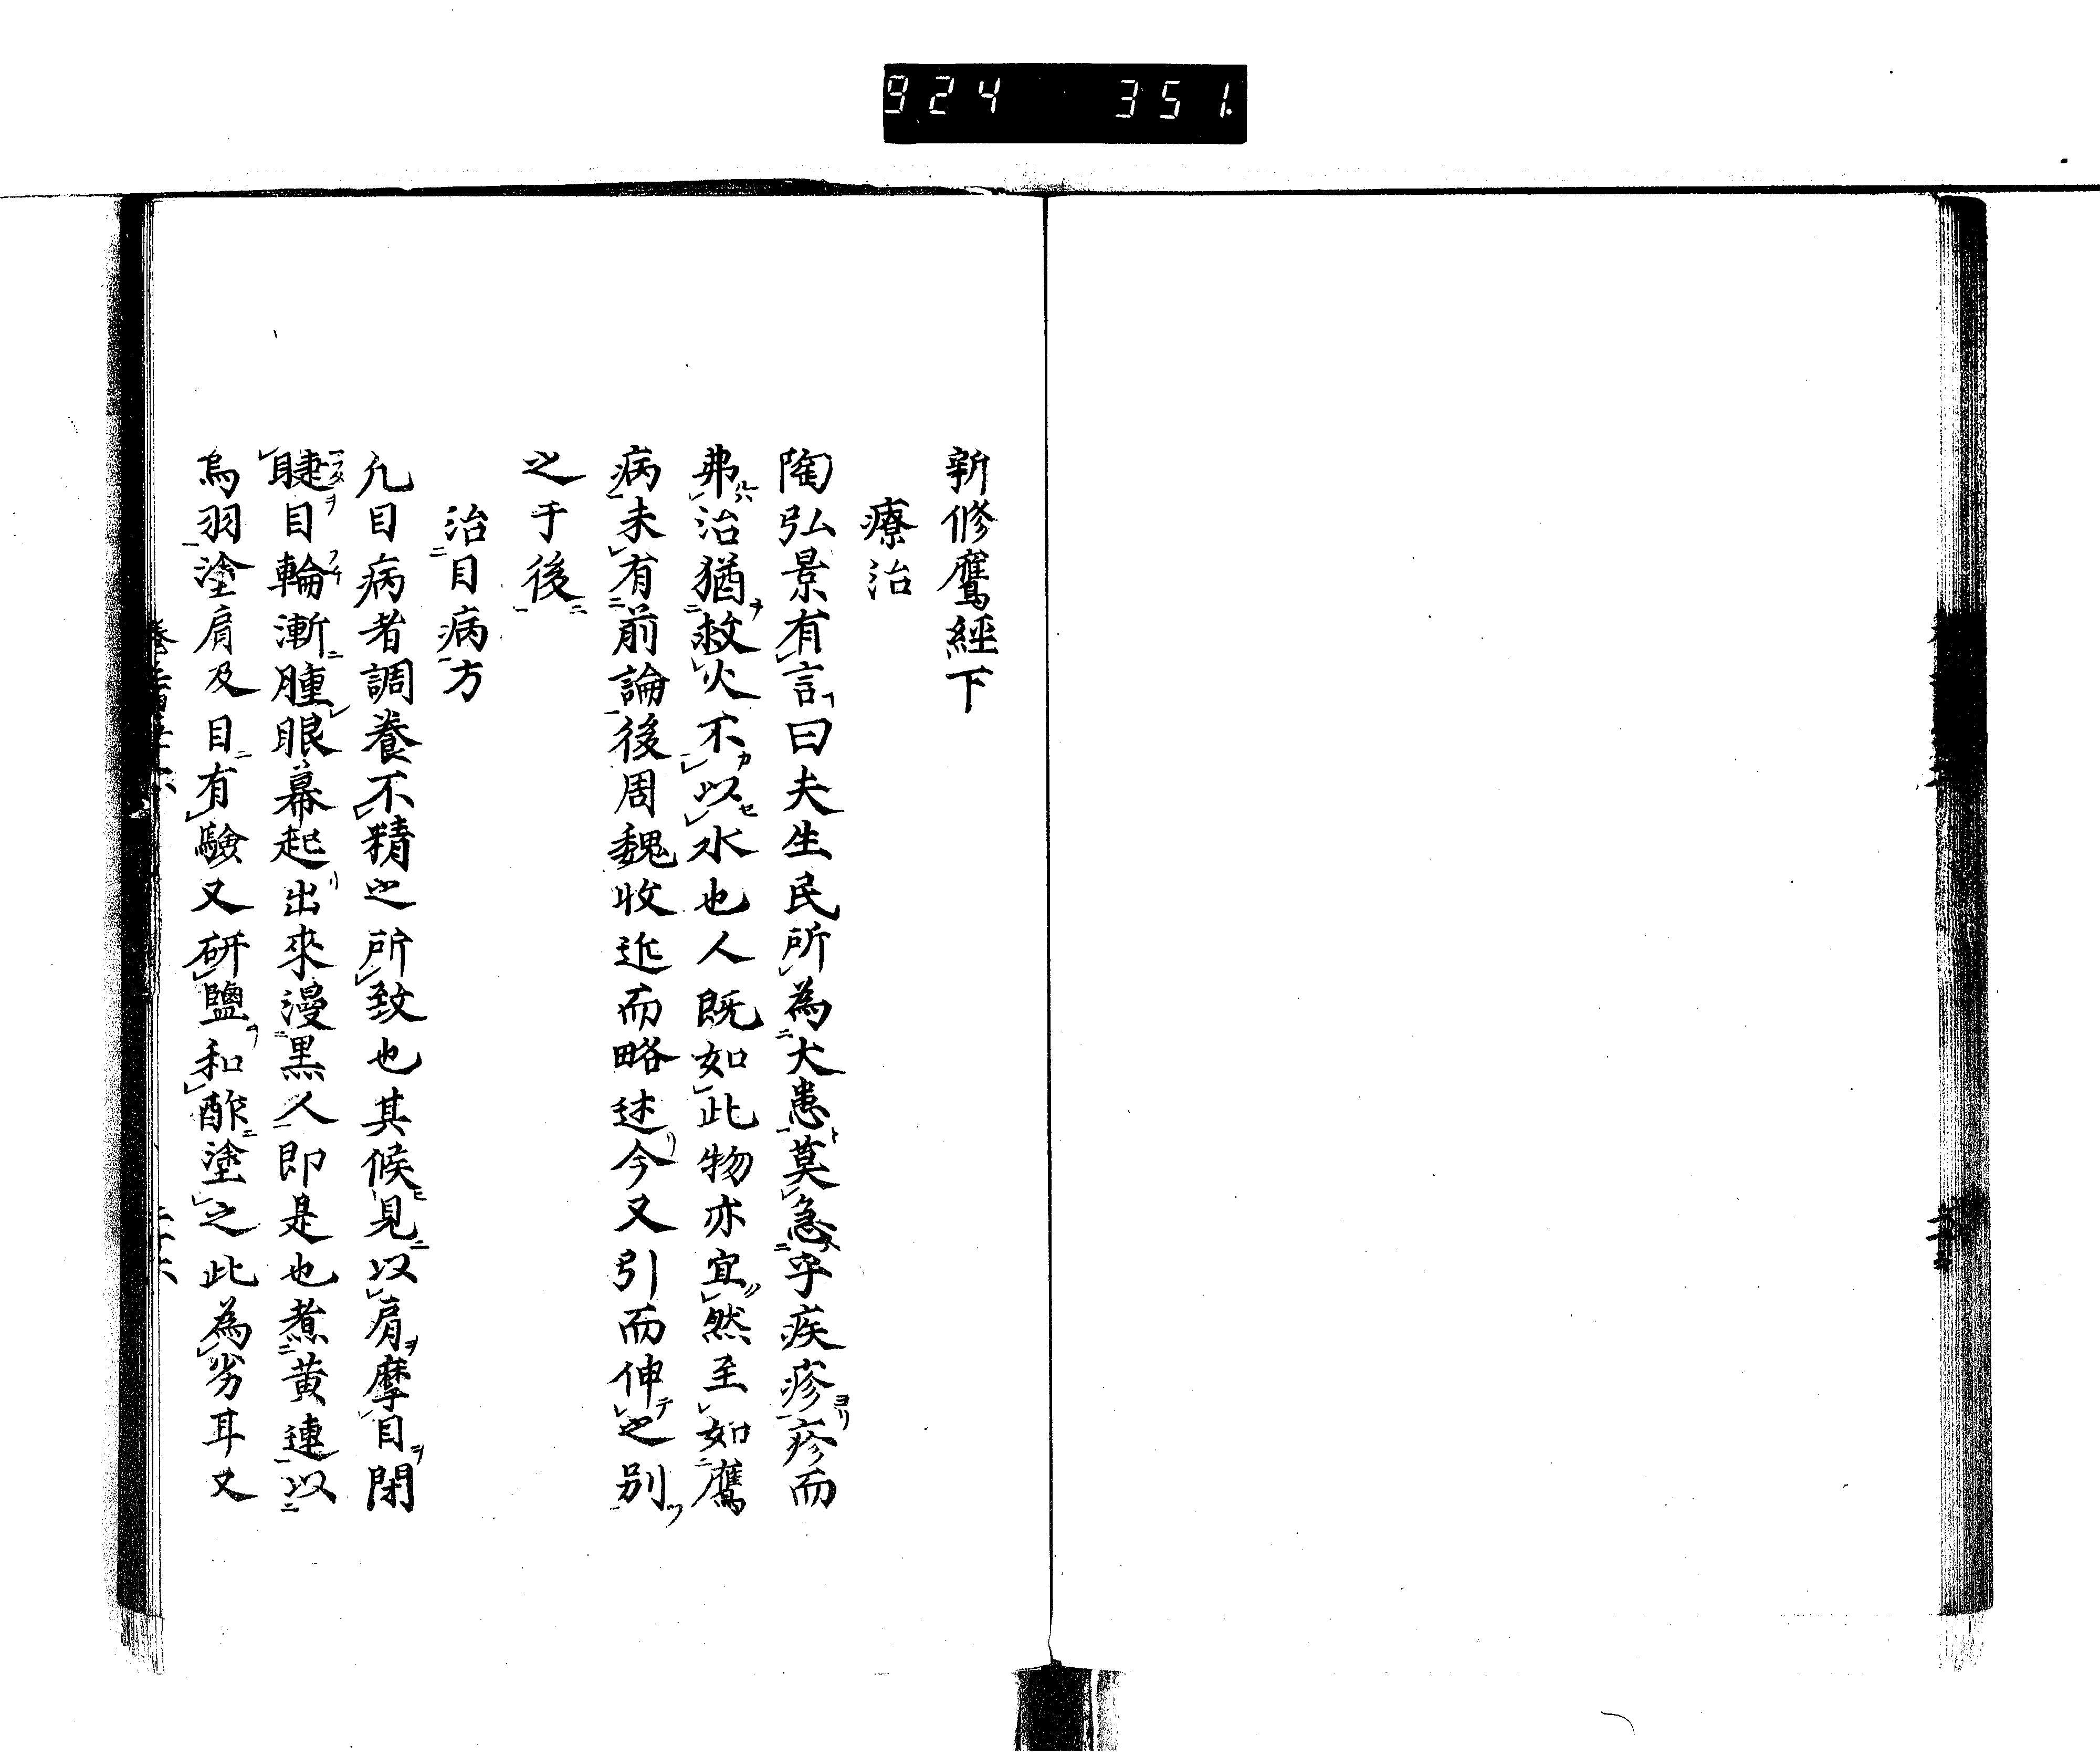 924 351
新修鷹經下
療治
陶弘景有言曰夫生民所為大患莫急乎疾疹疹而
弗治猶救火不以水也人既如此物亦宜然至如鷹
病未有前論後周魏收近而略述今又引而伸之別
之于後
治目病方
凡目病者調養不精之所致也其候見以肩摩目閉
睫目輪漸腫眼幕起出來漫黒人即是也煮黄連以
烏羽塗肩及目有驗又研鹽和酢塗之此為劣耳又